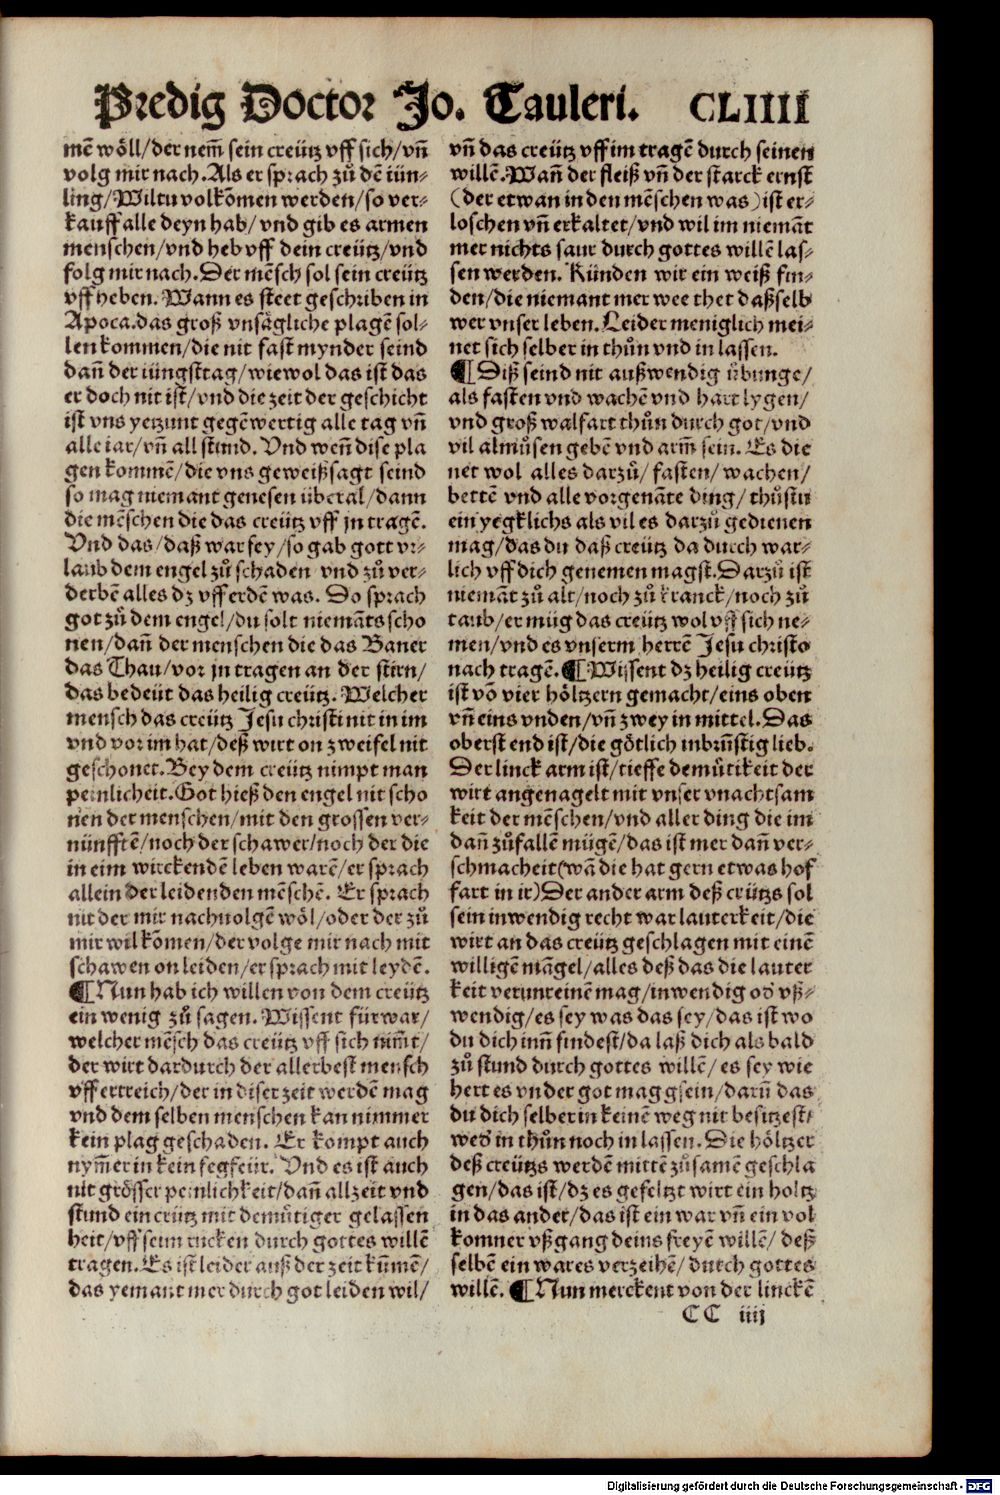 Predig Doctor Jo. Tauleri. CLIIII
mē wöll/der nem̄ sein creütz vff sich/vn̄
volg mir nach. Als er sprach zů dē iün⸗
ling/Wiltu volkōmen werden/so ver⸗
kauff alle deyn hab/vnd gib es armen
menschen/vnd heb vff dein creütz/vnd
folg mir nach. Der mēsch sol sein creütz
vffheben. Wann es steet geschriben in
Apoca.das groß vnsägliche plagē sol⸗
len kommen/die nit fast mynder seind
dañ der iüngsttag/wiewol das ist das
er doch nit ist/vnd die zeit der geschicht
ist vns yetzunt gegēwertig alle tag vn̄
alle iar/vn̄ all stund. Vnd wen̄ dise pla
gen kommē/die vns geweißsagt seind
so mag niemant genesen überal/dann
die mēschen die das creütz vff jn tragē.
Vnd das/daß war sey/so gab gott vr⸗
laub dem engel zů schaden vnd zů ver⸗
derbē alles dz vff erdē was. Do sprach
got zů dem engel/du solt niemāts scho
nen/dan̄ der menschen die das Baner
das Thau/vor jn tragen an der stirn/
das bedeüt das heilig creütz. Welcher
mensch das creütz Jesu christi nit in im
vnd vor im hat/deß wirt on zweifel nit
geschonet. Bey dem creütz nimpt man
peinlicheit. Got hieß den engel nit scho
nen der menschen/mit den grossen ver⸗
nünfftē/noch der schawer/noch der die
in eim wirckendē leben warē/er sprach
allein der leidenden mēschē. Er sprach
nit der mir nachuolgē wöl/oder der zů
mir wil kōmen/der volge mir nach mit
schawen on leiden/er sprach mit leydē.
¶ Nun hab ich willen von dem creütz
ein wenig zů sagen. Wissent fürwar/
welcher mēsch das creütz vff sich nim̄t/
der wirt dardurch der allerbest mensch
vff ertreich/der in diser zeit werdē mag
vnd dem selben menschen kan nimmer
kein plag geschaden. Er kompt auch
nym̄er in kein fegfeür. Vnd es ist auch
nit grösser peinlichkeit/dan̄ allzeit vnd
stund ein crütz mit demütiger gelassen
heit/vff seim rucken durch gottes willē
tragen. Es ist leider auß der zeit kūmē/
das yemant mer durch got leiden wil/
vn̄ das creütz vff im tragē durch seinen
willē. Wan̄ der fleiß vn̄ der starck ernst
(der etwan in den mēschen was) ist er⸗
loschen vn̄ erkaltet/vnd wil im niemāt
mer nichts saur durch gottes willē las⸗
sen werden. Künden wir ein weiß fin⸗
den/die niemant mer wee thet daßselb
wer vnser leben. Leider meniglich mei⸗
net sich selber in thůn vnd in lassen.
¶ Diß seind nit außwendig übunge/
als fasten vnd wachē vnd hart lygen/
vnd groß walfart thůn durch got/vnd
vil almůsen gebē vnd arm̄ sein. Es die
net wol alles darzů/fasten/wachen/
bettē vnd alle vorgenāte ding/thůstu
ein yegklichs als vil es darzů gedienen
mag/das du daß creütz da durch war⸗
lich vff dich genemen magst. Darzů ist
niemāt zů alt/noch zů kranck/noch zů
taub/er müg das creütz wol vff sich ne⸗
men/vnd es vnserm herrē Jesu christo
nach tragē. ¶ Wissent dz heilig creütz
ist vō vier höltzern gemacht/eins oben
vn̄ eins vnden/vn̄ zwey in mittel. Das
oberst end ist/die götlich inbrün̄stig lieb.
Der linck arm ist/tieffe demůtikeit der
wirt angenagelt mit vnser vnachtsam
keit der mēschen/vnd aller ding die im
dan̄ zůfallē mügē/das ist mer dan̄ ver⸗
schmacheit(wā die hat gern etwas hof
fart in ir) Der ander arm deß crützs sol
sein inwendig recht war lauterkeit/die
wirt an das creütz geschlagen mit einē
willigē māgel/alles deß das die lauter
keit verunreinē mag/inwendig oď vß⸗
wendig/es sey was das sey/das ist wo
du dich inn̄ findest/da laß dich als bald
zů stund durch gottes willē/es sey wie
hert es vnder got mag gsein/darū̄ das
du dich selber in keinē weg nit besitzest/
weď in thůn noch in lassen. Die höltzer
deß creützs werdē mittē zůsamē geschla
gen/das ist/dz es gefeltzt wirt ein holtz
in das ander/das ist ein war vn̄ ein vol
komner vßgang deins freyē willē/deß
selbē ein wares verzeihē/durch gottes
willē. ¶ Nun merckent von der linckē
CC iiij
Digitalisierung gefördert durch die Deutsche Forschungsgemeinschaft - DFG